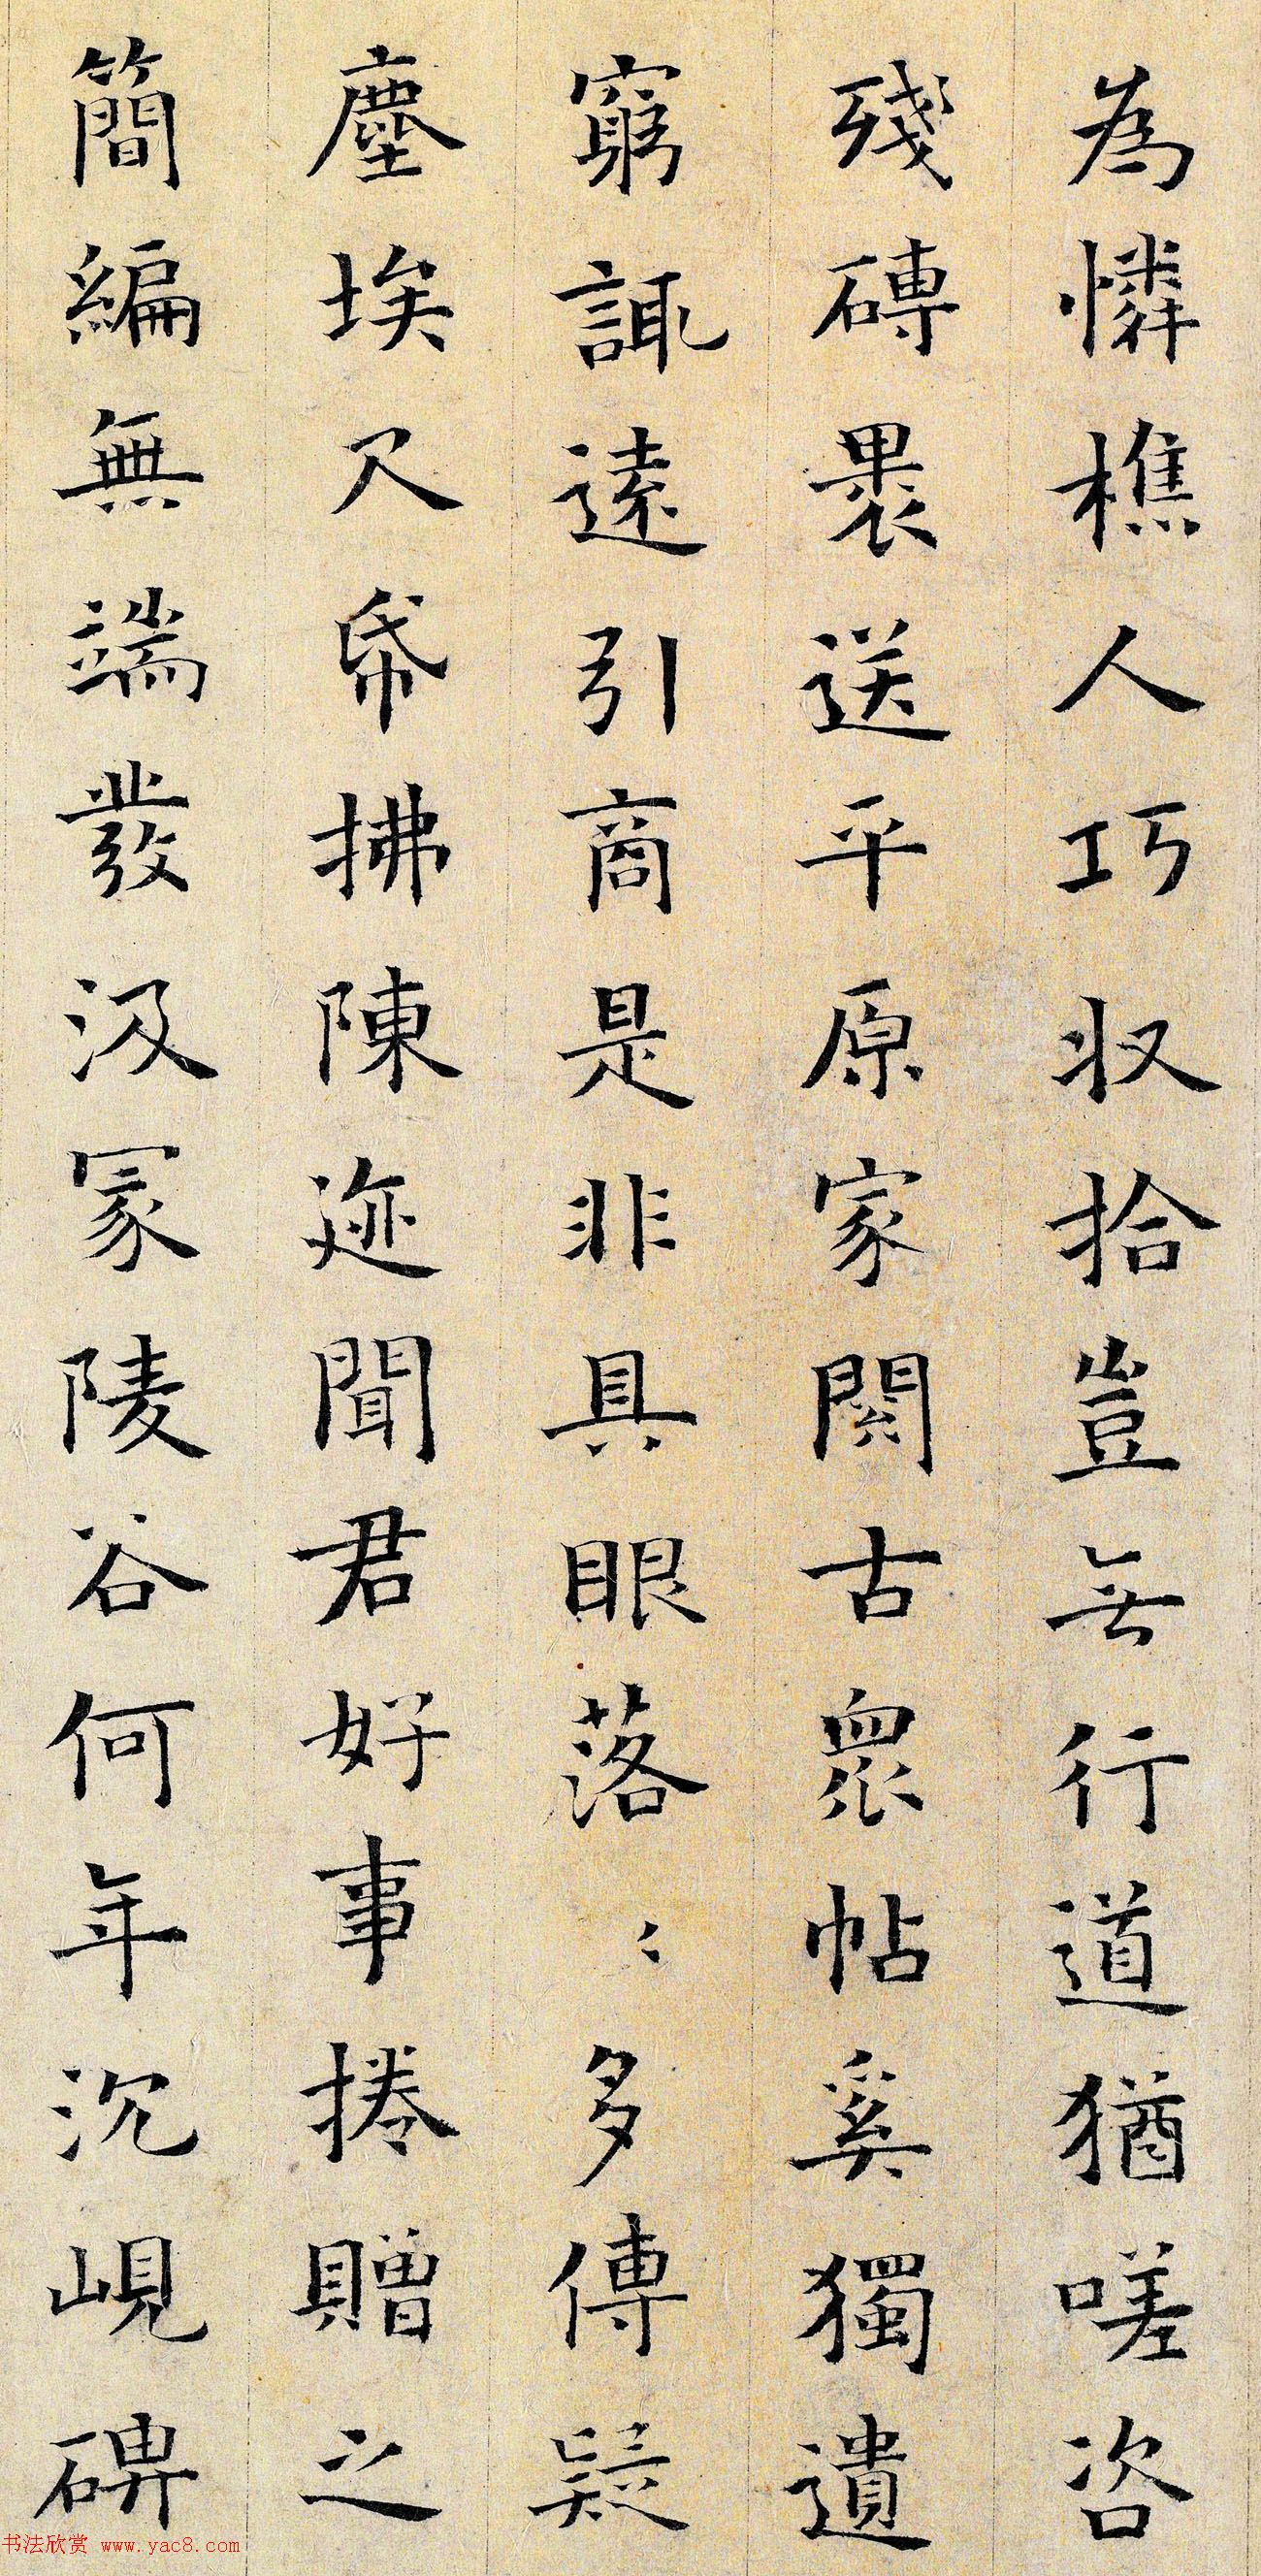 為憐樵人巧収拾豈无行道猶嗟咨
殘磚裹送平原家閱古眾帖奚獨遺
窮諏遠引商是非具眼落々多傳疑
塵埃尺帋拂陳迹聞君好事捲贈之
簡編無端發汲冢陵谷何年沉峴碑
书法欣赏 www.yac8.com